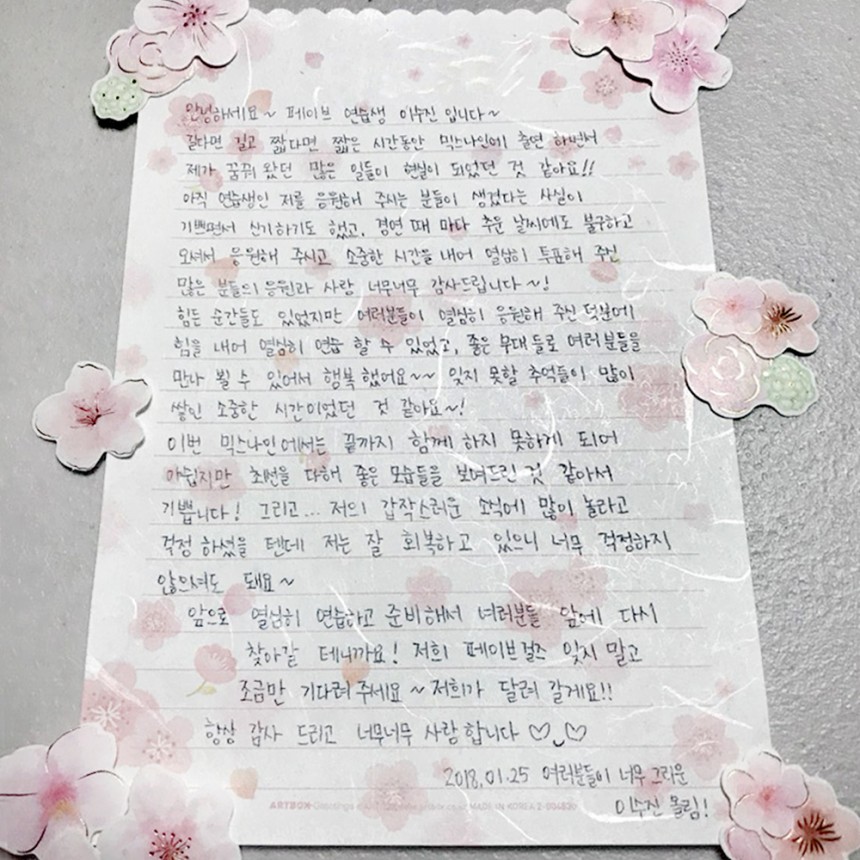 안녕하세요~ 페이브 연습생 이수진 입니다~
길다면 길고 짧다면 짧은 시간동안 믹스나인에 출연 하면서
제가 꿈꿔 왔던 많은 일들이 현실이 되었던 것 같아요!!
아직 연습생인 저를 응원해 주시는 분들이 생겼다는 사실이
기쁘면서 신기하기도 했고, 경연 때 마다 추운 날씨에도 불구하고
오셔서 응원해 주시고 소중한 시간을 내어 열심히 투표해 주신
많은 분들의 응원과 사랑 너무너무 감사드립니다~!
힘든 순간들도 있었지만 여러분들이 열심히 응원해 주신 덕분에
힘을 내어 열심히 연습 할 수 있었고, 좋은 무대들로 여러분들을
만나 뵐 수 있어서 행복 했어요~~ 잊지 못할 추억들이 많이
쌓인 소중한 시간이었던 것 같아요~!
이번 믹스나인에서는 끝까지 함께 하지 못하게 되어
아쉽지만 최선을 다해 좋은 모습들을 보여드린 것 같아서
기쁩니다! 그리고... 저의 갑작스러운 소식에 많이 놀라고
걱정 하셨을 텐데 저는 잘 회복하고 있으니 너무 걱정하지
않으셔도 돼요~
앞으로 열심히 연습하고 준비해서 여러분들 앞에 다시
찾아갈 테니까요! 저희 페이브걸즈 잊지 말고
조금만 기다려주세요~ 저희가 달려 갈게요!!
항상 감사 드리고 너무너무 사랑합니다♡◡♡
2018.01.25 여러분들이 너무 그리운
ARTBOX MADE IN KOREA
이수진 올림!